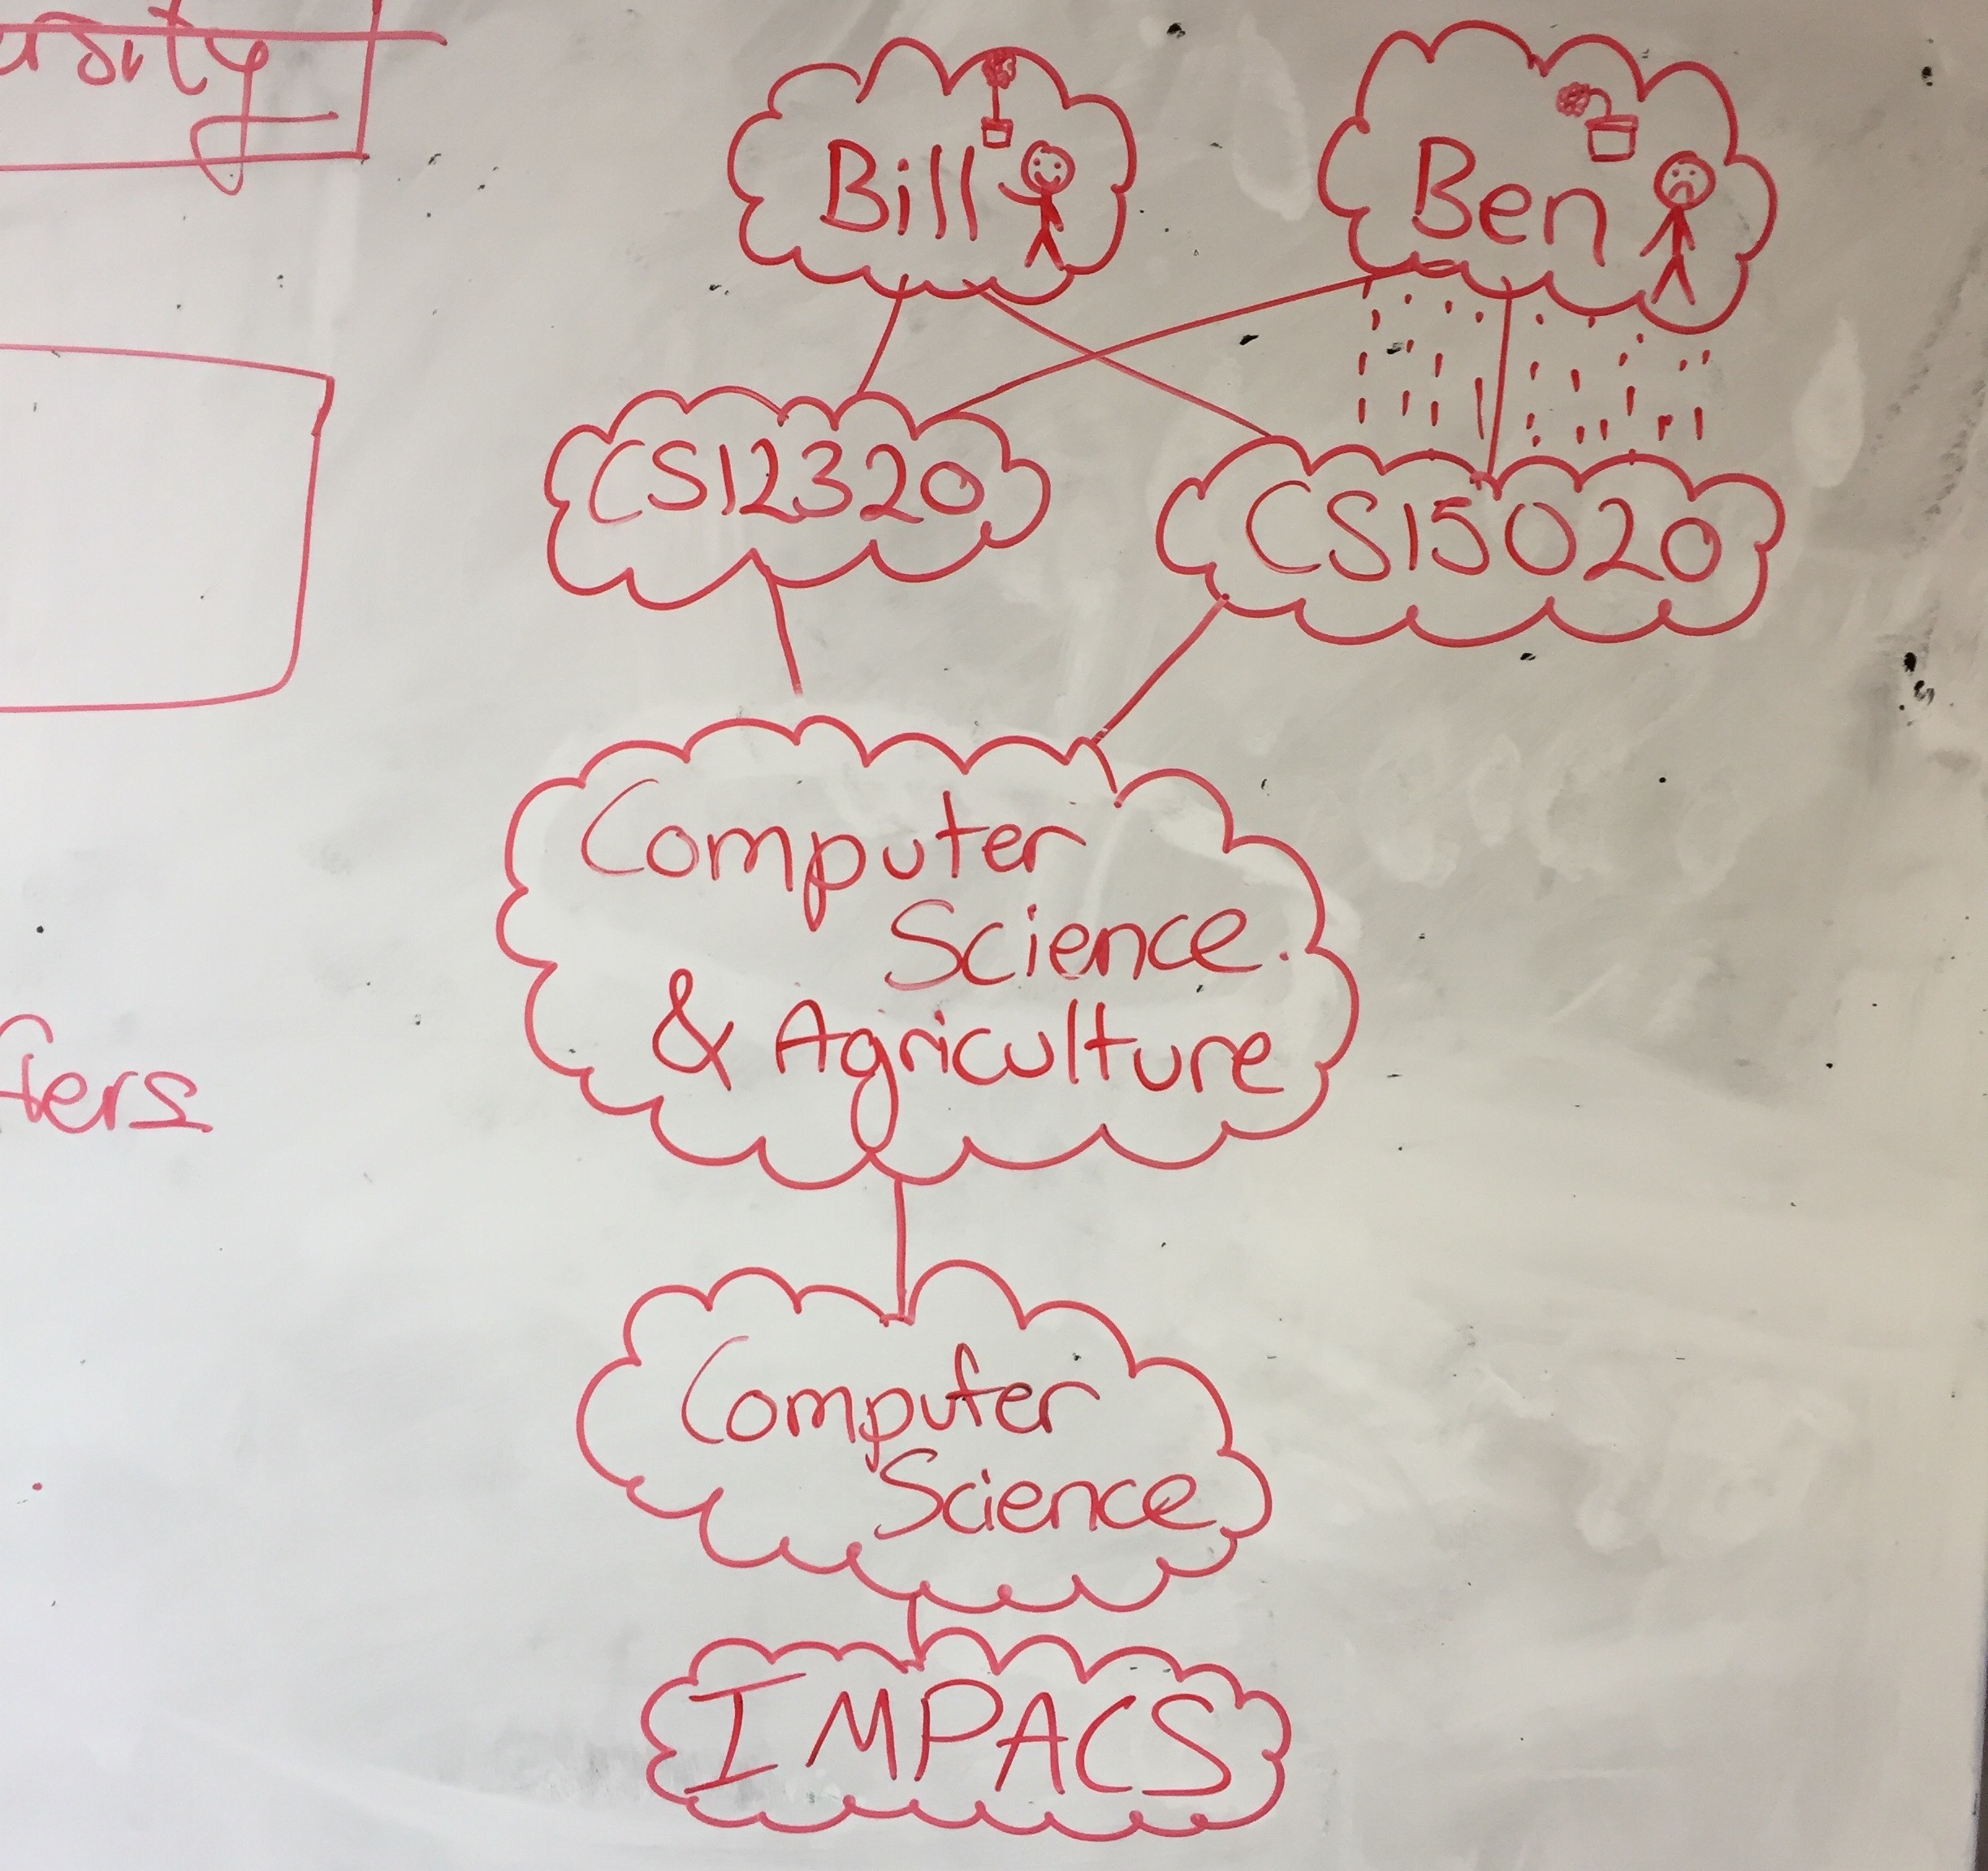 Bill
Ben
CS12320
CS15020
Computer
Science
& Agriculture
Computer
Science
IMPACS